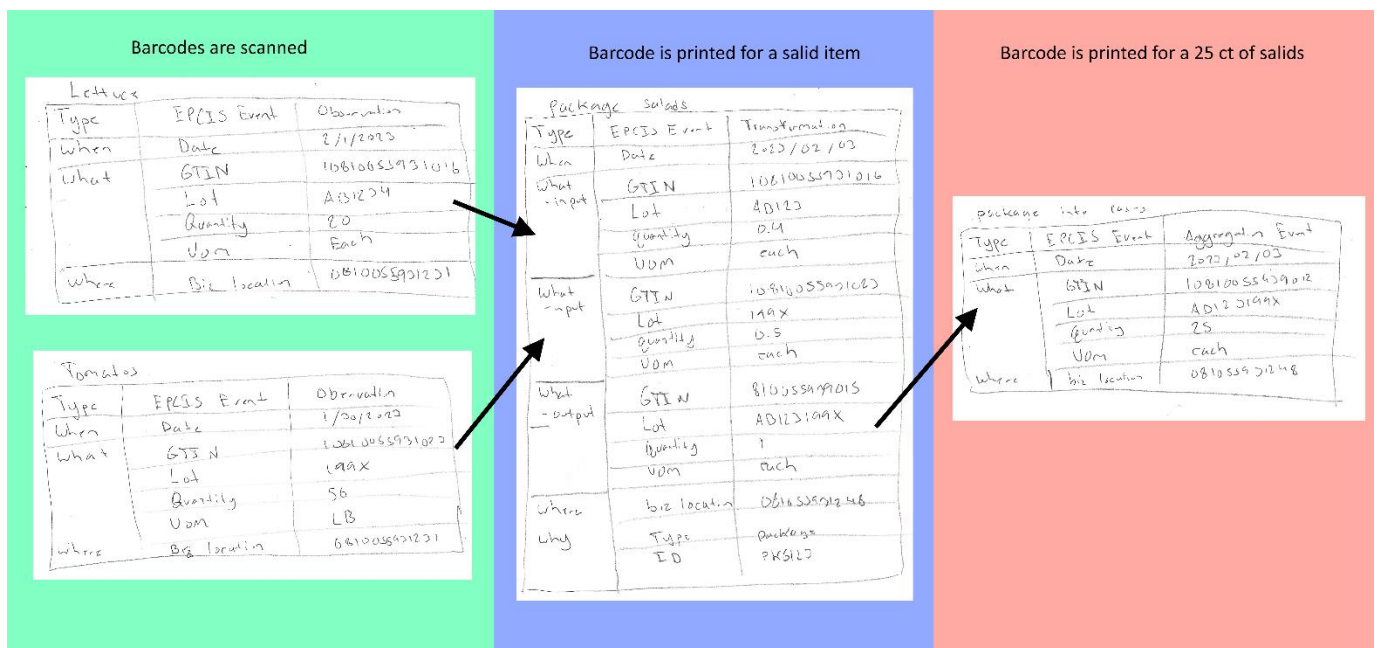 Barcodes are scanned
Lettuce
Type EPCIS Event Observation
When Date 2/1/2023
What GTIN 10810055931016
Lot AB1234
Quantity 20
UOM Each
Where Biz location
Tomatos
Type EPCIS Event Obervation
When Date 1/30/2023
What GTIN
Lot 199X
Quantity 50
UOM LB
Where Biz location
Barcode is printed for a salid item
package salads
Type EPCIS Event Transformation
When Date 2023/02/03
What - input GTIN 10810055931016
Lot AB123
Quantity 0.4
UOM each
What - input GTIN
Lot 199X
Quantity 0.5
UOM each
What - output GTIN
Lot AB123199X
Quantity 1
UOM each
Where biz location
Why Type Package
ID PKG123
Barcode is printed for a 25 ct of salids
package into cases
Type EPCIS Event Aggregation Event
When Date 2023/02/03
What GTIN
Lot AB123199X
Quantity 25
UOM each
Where biz location